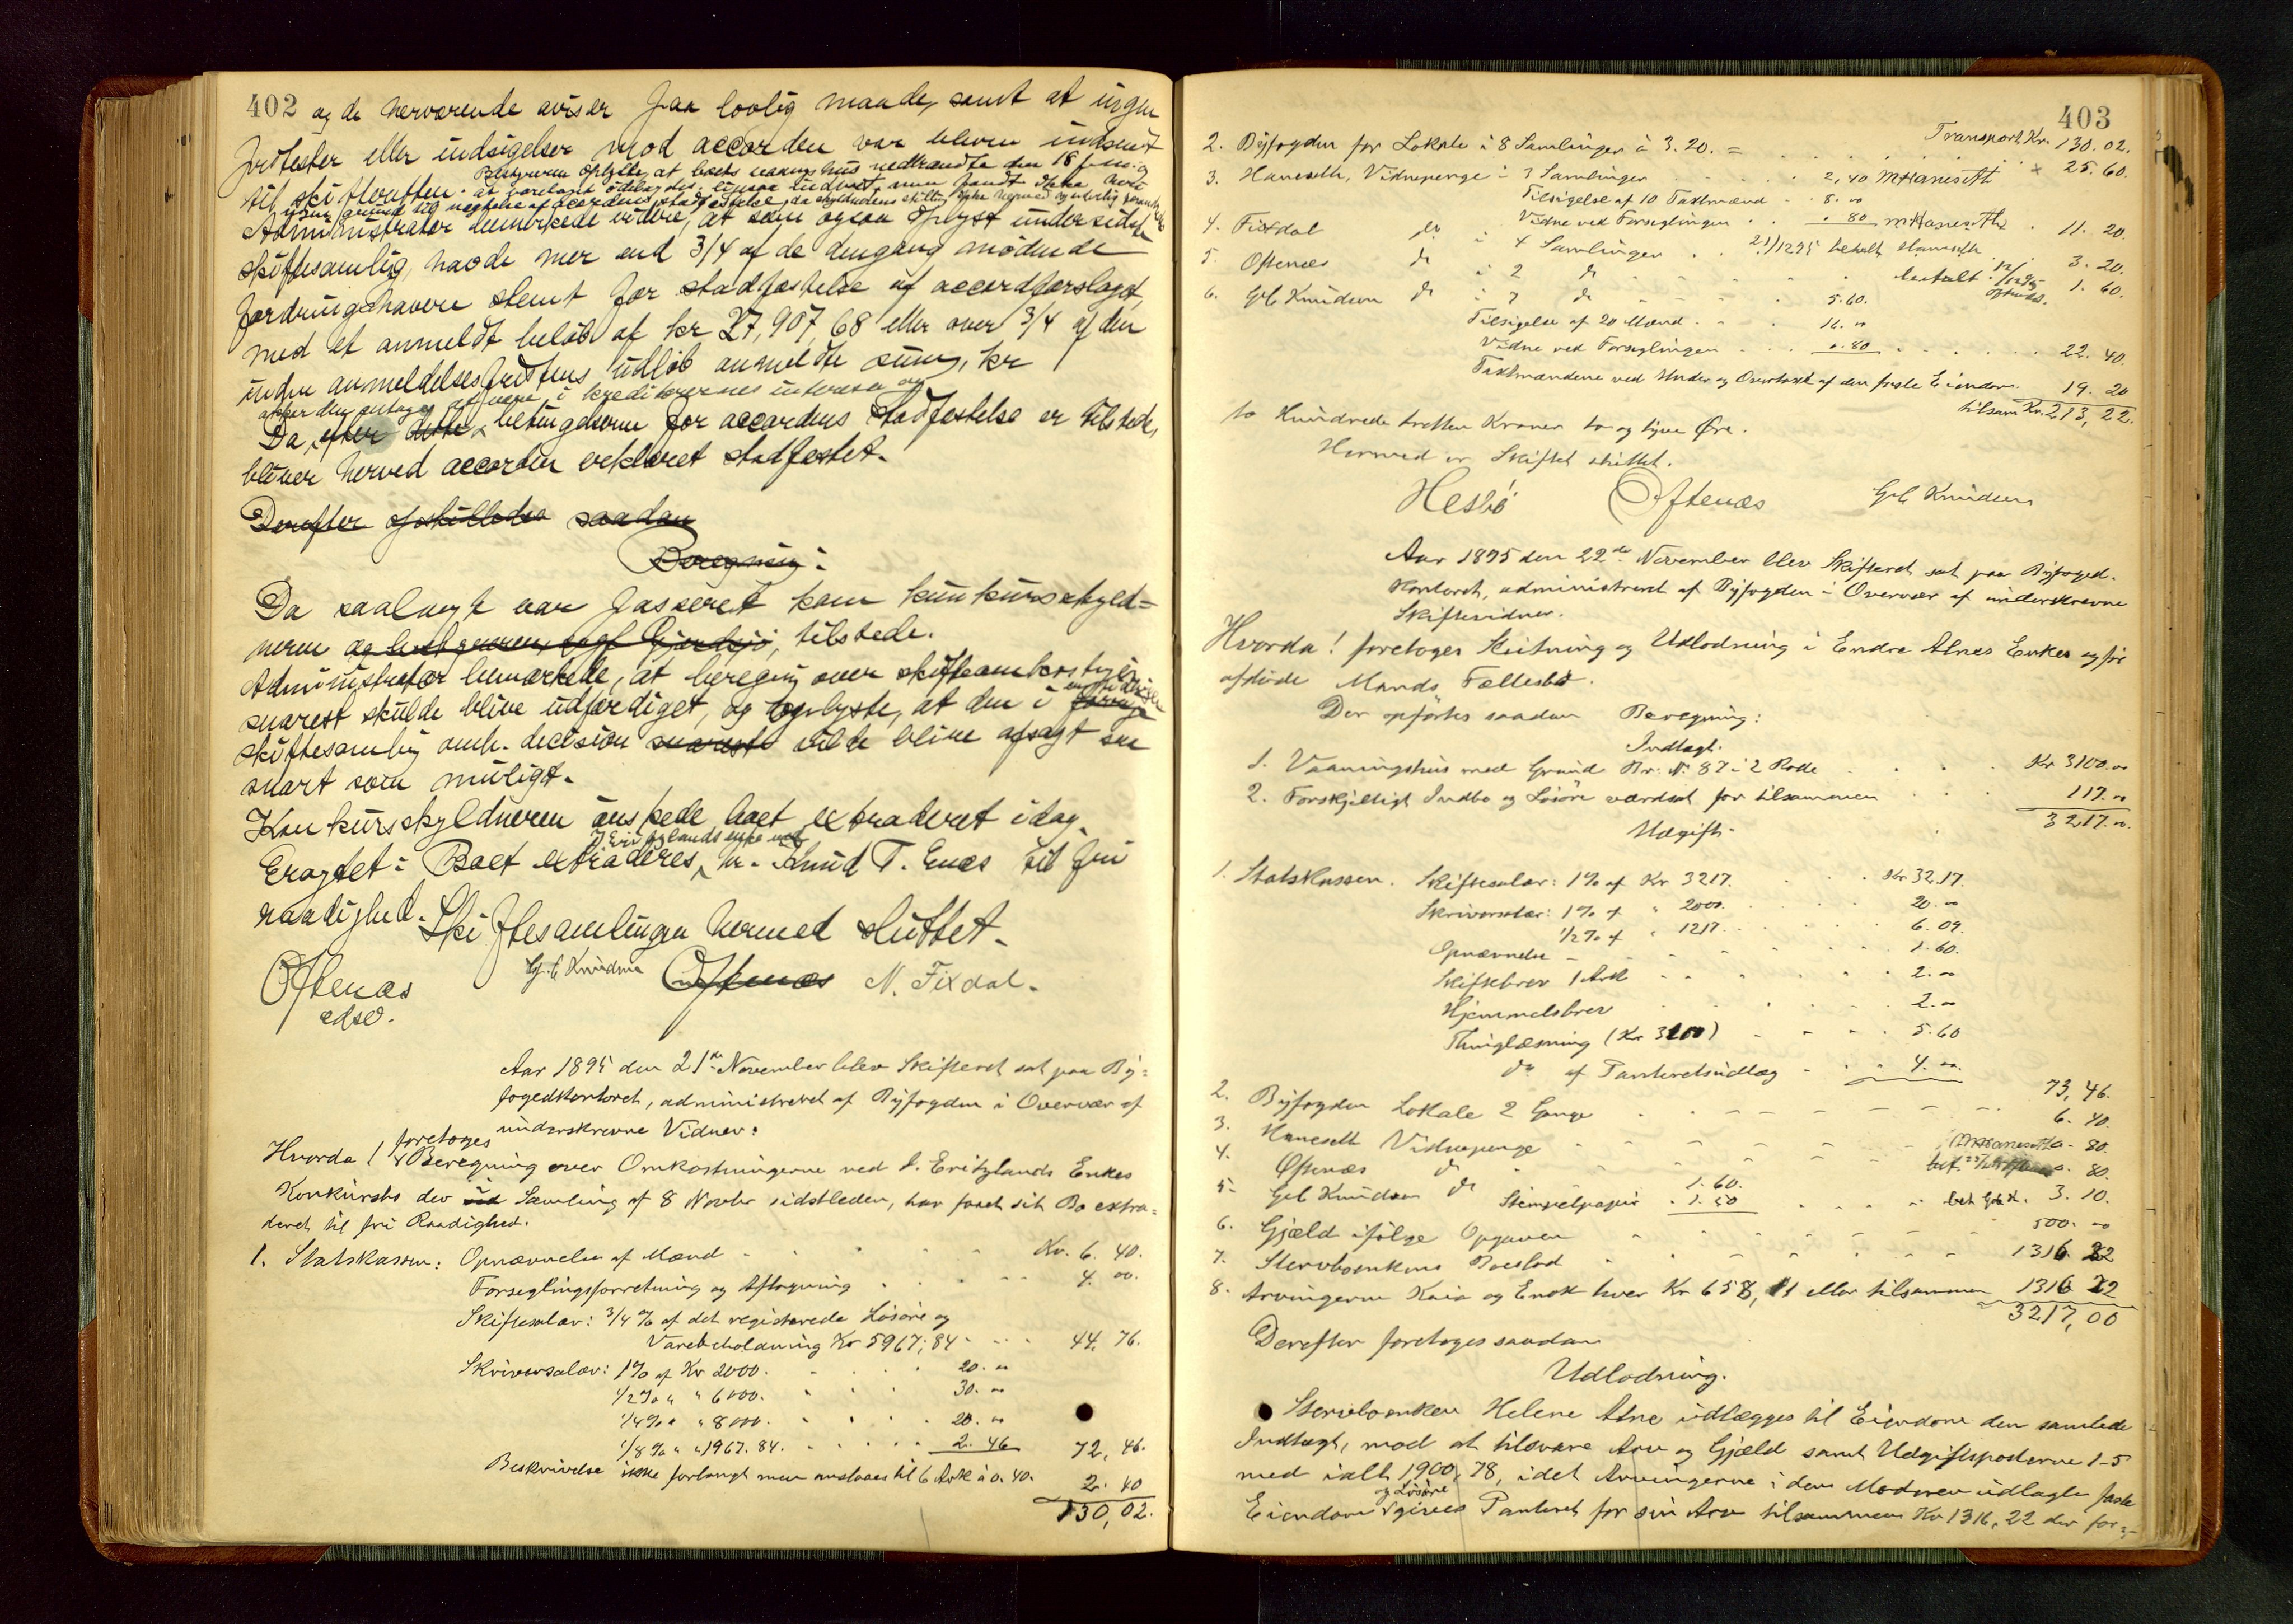 402 og de herværende aviser paa lovlig maade, samt at ingen
protester eller indsigelser mod accorden var bleven indsendt
til skifteretten. Bestyreren oplyste, at boets vaaningshus nedbrændte den 18
Administrator bemerkede videre, at som ogsaa oplyst under sidste
skiftesamling, havde mer end 3/4 af de dengang mødende
fordringshavere stemt for stadfæstelse af accordforslaget,
med et anmeldt beløb af kr 27,907,68 eller over 3/4 af den
inden anmeldelsesfristens udløb anmeldte sum, kr
accorden antages at være i kreditorernes interesse og
Da, efter dette, betingelserne for accordens stadfæstelse er tilstede,
bliver herved accorden erklæret stadfæstet.
Derefter opstilledes saadan
Beregning:
Da saalangt var passeret kom konkursskyld-
neren og tilstede.
Administrator bemærkede, at beregning over skifteomkostninger
snarest skulde blive udfærdiget, og oplyste, at den i forrige
skiftesamling omh. decision snarest vilde blive afsagt saa
snart som muligt.
Konkursskyldneren ønskede boet extraderet idag.
J Eritzlands enke ved
Eragtet: Boet extraderes, hr. Knud T. Enes til fri
raadighed. Skiftesamlingen hermed sluttet.
Oftenæs G. C. Knudsen Oftenæs N. Fixdal.
edsv.
Aar 1895 den 21de November blev Skifteret sat paa By=
fogedkontoret, administreret af Byfogden i Overvær af
underskrevne Vidner:
Hvorda! foretoges Beregning over Omkostningerne ved J. Eritzlands Enkes
Konkursbo der ved Samling af 8 Novbr sidstleden, har faaet sit Bo extra=
deret til fri Raadighed.
1. Statskassen: Opnævnelse af Mænd Kr. 6. 40.
Forseglingsforretning og Aftagning 4. 00.
Skiftesalær: 3/4 % af det registrerede Løsøre og
Varebeholdning Kr 5967,84 44, 76.
Skriversalær: 1% af Kr 2000. 20. "
1/2 % " " 6000. 30. "
1/4 % " " 8000. 20. "
1/8 % " " 1967.84. 2. 46 72, 46.
Beskrivelse ikke forlangt men anslaaes til 6 Ark à 0.40. 2. 40
130, 02.
403
Transport Kr. 130. 02.
2. Byfogden for Lokale i 8 Samlinger à 3.20. = 25. 60.
3. Haneseth, Vidnepenge i 3 Samlinger 2,40 M Haneseth
Tilsigelse af 10 Taxtmænd 8. "
Vidne ved Forseglingen . 80 M Haneseth 11. 20.
4. Fixdal do i 4 Samlinger 21/12 95 betalt Haneseth 3. 20.
5. Oftenæs do i 2 do betalt 12/12 95 Oftenæs. 1. 60.
6. G. C. Knudsen do i 7 do 5.60.
Tilsigelse af 20 Mænd 16. "
Vidne ved Forseglingen 0.80 22. 40.
Taxtmændene ved Under og Overtaxt af den faste Eiendom 19. 20
tilsam Kr. 213, 22.
to Hundrede tretten Kroner to og tyve Øre.
Hermed er Skiftet sluttet.
Hesbø Oftenæs G. C. Knudsen
Aar 1895 den 22de November blev Skifteret sat paa Byfoged-
kontoret, administreret af Byfogden i Overvær af underskrevne
Skiftevidner.
Hvorda! foretoges Slutning og Udlodning i Endre Alnes Enkes og før
afdøde Mands Fællesbo.
Der opførtes saadan Beregning:
Indtægt.
1. Vaaningshus med Grund Br. No 87 i 2 Rode Kr 3100."
2. Forskjelligt Indbo og Løsøre værdsat for tilsammen 117."
3217."
Udgift.
1. Statskassen. Skiftesalær: 1% af Kr 3217. Kr 32.17.
Skriversalær: 1% af " 2000. 20. "
1/2 % af " 1217. 6. 09.
Opnævnelse 1. 60.
Skiftebrev 1 Ark 2. "
Hjemmelsbrev 2. "
Thinglæsning (Kr 3100) 5. 60
do af Panteretsudlæg 4. " 73, 46.
2. Byfogden Lokale 2 Gange 6. 40.
3. Haneseth Vidnepenge M Haneseth 0. 80.
4. Oftenæs do 0. 80.
5. G. C. Knudsen do 1.60.
Stempelpapir 1.50 bet G. C. K. 3. 10.
6. Gjæld ifølge Opgaven 500. "
7. Stervboenkens Boeslod 1316 22
8. Arvingerne Kaia og Enok hver Kr 658,11 eller tilsammen 1316 22
3217,00
Derefter foretoges saadan
Udlodning.
Stervboenken Helene Alne udlægges til Eiendom den samlede
Indtægt, mod at tilsvare Arv og Gjæld samt Udgiftsposterne 1-5
med ialt 1900,78, idet Arvingerne i den Moderen udlagte faste
Eiendom og Løsøre gives Panteret for sin Arv tilsammen Kr 1316,22 der for=